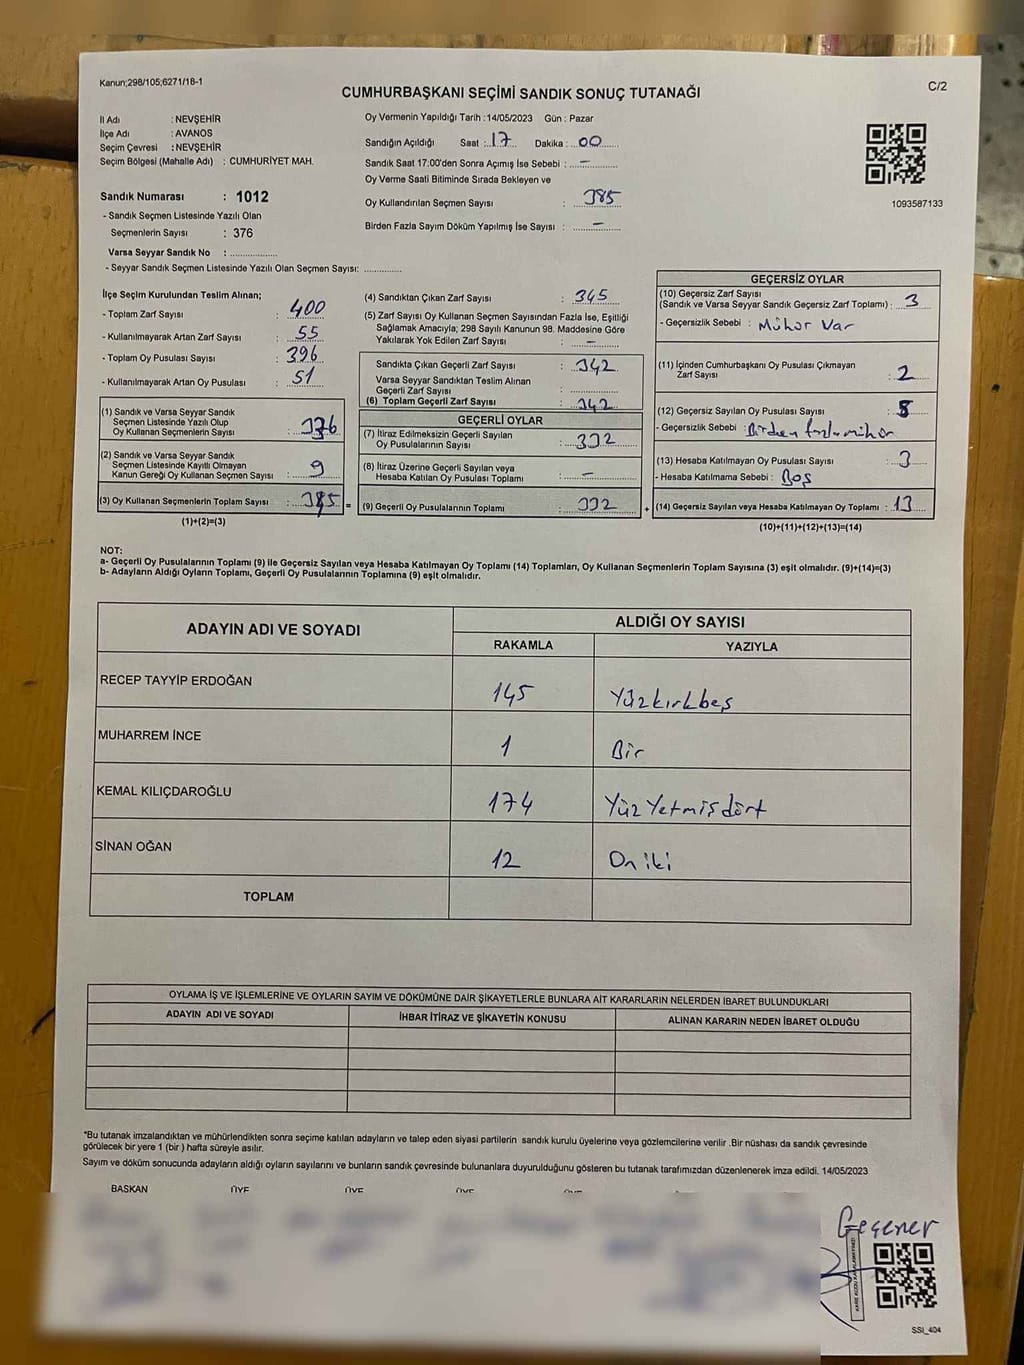 Kanun;298/105;6271/18-1
C/2
CUMHURBAŞKANI SEÇİMİ SANDIK SONUÇ TUTANAĞI
İl Adı : NEVŞEHİR
İlçe Adı : AVANOS
Seçim Çevresi : NEVŞEHİR
Seçim Bölgesi (Mahalle Adı) : CUMHURİYET MAH.
Sandık Numarası : 1012
- Sandık Seçmen Listesinde Yazılı Olan
Seçmenlerin Sayısı : 376
Varsa Seyyar Sandık No :
- Seyyar Sandık Seçmen Listesinde Yazılı Olan Seçmen Sayısı:
Oy Vermenin Yapıldığı Tarih :14/05/2023 Gün : Pazar
Sandığın Açıldığı Saat : 17 Dakika : 00
Sandık Saat 17:00'den Sonra Açımış İse Sebebi : –
Oy Verme Saati Bitiminde Sırada Bekleyen ve
Oy Kullandırılan Seçmen Sayısı : 385
Birden Fazla Sayım Döküm Yapılmış İse Sayısı : –
1093587133
İlçe Seçim Kurulundan Teslim Alınan;
- Toplam Zarf Sayısı : 400
- Kullanılmayarak Artan Zarf Sayısı : 55
- Toplam Oy Pusulası Sayısı : 396
- Kullanılmayarak Artan Oy Pusulası : 51
(1) Sandık ve Varsa Seyyar Sandık
Seçmen Listesinde Yazılı Olup
Oy Kullanan Seçmenlerin Sayısı :
(2) Sandık ve Varsa Seyyar Sandık
Seçmen Listesinde Kayıtlı Olmayan
Kanun Gereği Oy Kullanan Seçmen Sayısı : 9
(3) Oy Kullanan Seçmenlerin Toplam Sayısı : =
(1)+(2)=(3)
(4) Sandıktan Çıkan Zarf Sayısı : 345
(5) Zarf Sayısı Oy Kullanan Seçmen Sayısından Fazla İse, Eşitliği
Sağlamak Amacıyla; 298 Sayılı Kanunun 98. Maddesine Göre
Yakılarak Yok Edilen Zarf Sayısı : –
Sandıkta Çıkan Geçerli Zarf Sayısı : 342
Varsa Seyyar Sandıktan Teslim Alınan
Geçerli Zarf Sayısı :
(6) Toplam Geçerli Zarf Sayısı : 342
GEÇERLİ OYLAR
(7) İtiraz Edilmeksizin Geçerli Sayılan
Oy Pusulalarının Sayısı : 332
(8) İtiraz Üzerine Geçerli Sayılan veya
Hesaba Katılan Oy Pusulası Toplamı : –
(9) Geçerli Oy Pusulalarının Toplamı : 332 +
GEÇERSİZ OYLAR
(10) Geçersiz Zarf Sayısı
(Sandık ve Varsa Seyyar Sandık Geçersiz Zarf Toplamı) : 3
- Geçersizlik Sebebi : Mühür Var
(11) İçinden Cumhurbaşkanı Oy Pusulası Çıkmayan
Zarf Sayısı : 2
(12) Geçersiz Sayılan Oy Pusulası Sayısı :
- Geçersizlik Sebebi : Birden fazla mühür
(13) Hesaba Katılmayan Oy Pusulası Sayısı : 3
- Hesaba Katılmama Sebebi : Boş
(14) Geçersiz Sayılan veya Hesaba Katılmayan Oy Toplamı : 13
(10)+(11)+(12)+(13)=(14)
NOT:
a- Geçerli Oy Pusulalarının Toplamı (9) ile Geçersiz Sayılan veya Hesaba Katılmayan Oy Toplamı (14) Toplamları, Oy Kullanan Seçmenlerin Toplam Sayısına (3) eşit olmalıdır. (9)+(14)=(3)
b- Adayların Aldığı Oyların Toplamı, Geçerli Oy Pusulalarının Toplamına (9) eşit olmalıdır.
ADAYIN ADI VE SOYADI
ALDIĞI OY SAYISI
RAKAMLA YAZIYLA
RECEP TAYYİP ERDOĞAN 145 Yüzkırkbeş
MUHARREM İNCE 1 Bir
KEMAL KILIÇDAROĞLU 174 Yüz Yetmişdört
SİNAN OĞAN 12 On iki
TOPLAM
OYLAMA İŞ VE İŞLEMLERİNE VE OYLARIN SAYIM VE DÖKÜMÜNE DAİR ŞİKAYETLERLE BUNLARA AİT KARARLARIN NELERDEN İBARET BULUNDUKLARI
ADAYIN ADI VE SOYADI İHBAR İTİRAZ VE ŞİKAYETİN KONUSU ALINAN KARARIN NEDEN İBARET OLDUĞU
*Bu tutanak imzalandıktan ve mühürlendikten sonra seçime katılan adayların ve talep eden siyasi partilerin sandık kurulu üyelerine veya gözlemcilerine verilir .Bir nüshası da sandık çevresinde
görülecek bir yere 1 (bir ) hafta süreyle asılır.
Sayım ve döküm sonucunda adayların aldığı oyların sayılarını ve bunların sandık çevresinde bulunanlara duyurulduğunu gösteren bu tutanak tarafımızdan düzenlenerek imza edildi. 14/05/2023
BAŞKAN ÜYE ÜYE ÜYE ÜYE
Geçener
SSI_404